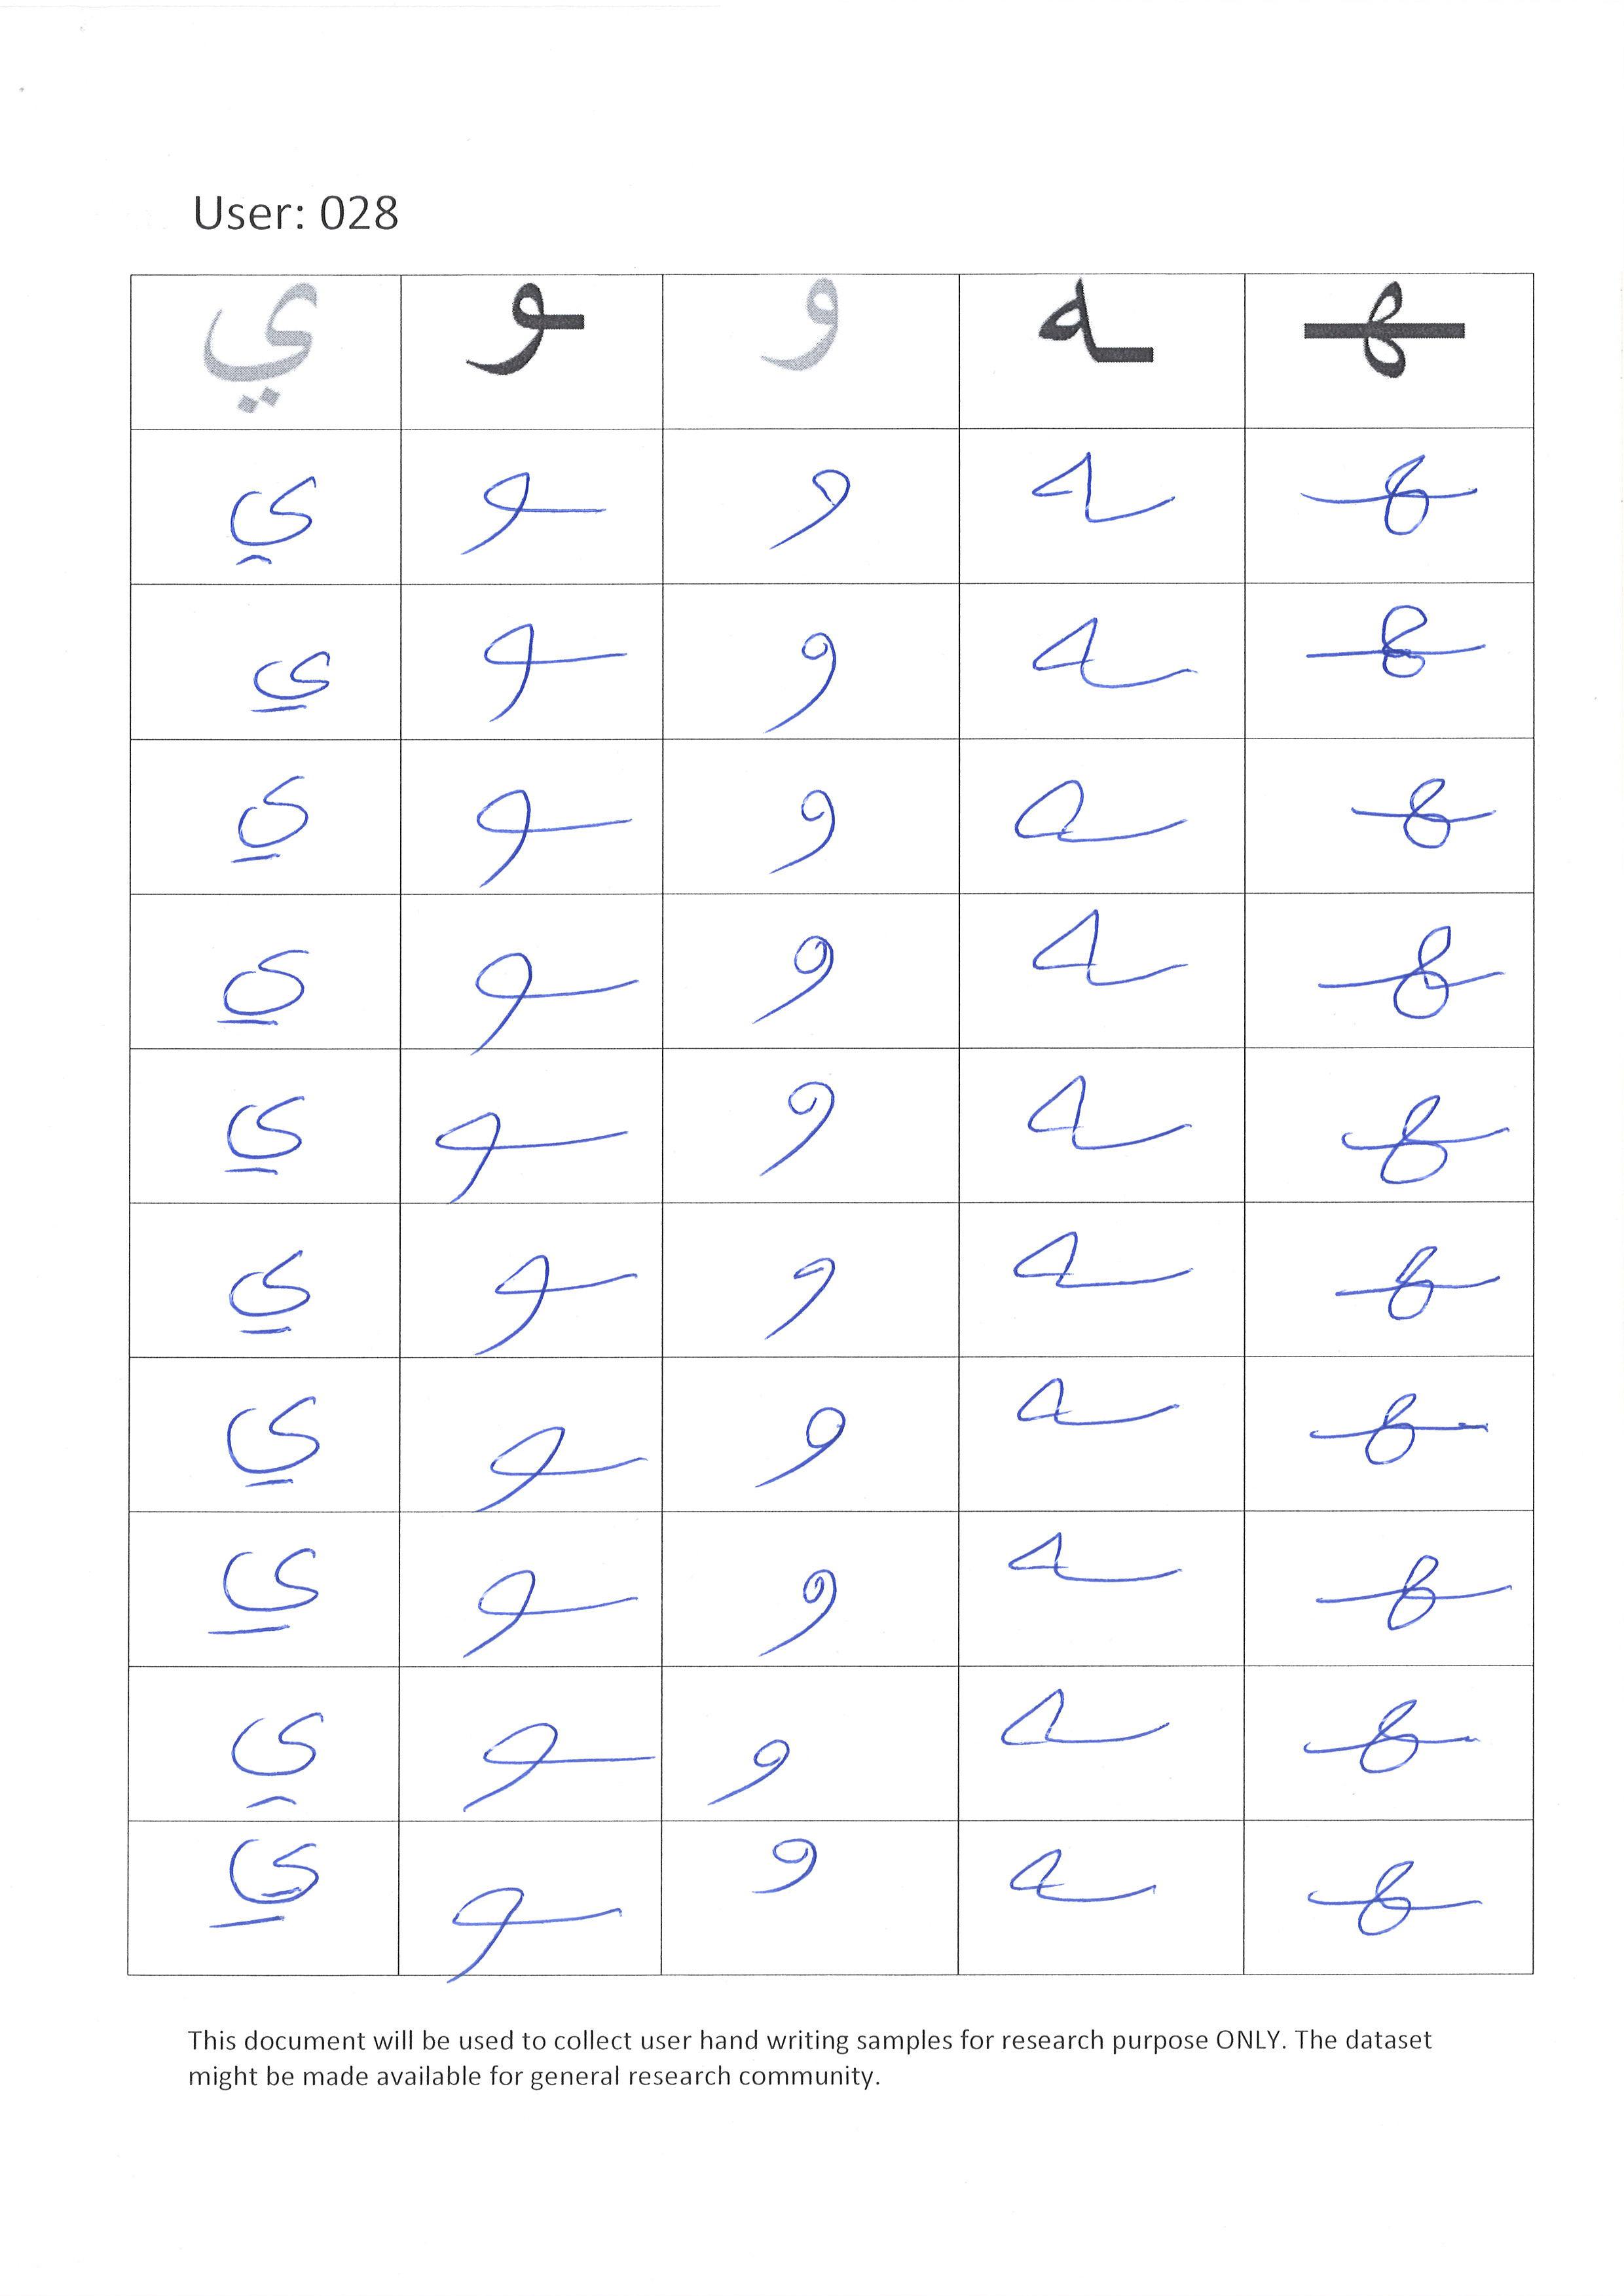 User: 028
ي ـو و ـه ـهـ
ي ـو و ـه ـهـ
ي ـو و ـه ـهـ
ي ـو و ـه ـهـ
ي ـو و ـه ـهـ
ي ـو و ـه ـهـ
ي ـو و ـه ـهـ
ي ـو و ـه ـهـ
ي ـو و ـه ـهـ
ي ـو و ـه ـهـ
ي ـو و ـه ـهـ
This document will be used to collect user hand writing samples for research purpose ONLY. The dataset
might be made available for general research community.